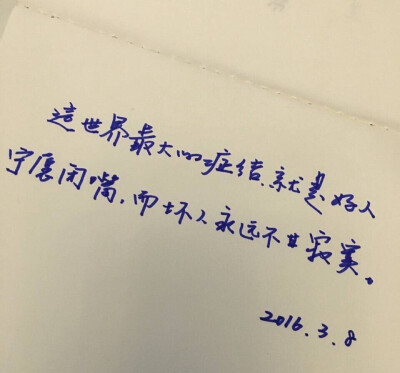 這世界最大的症结就是好人
宁愿闭嘴，而坏人永远不甘寂寞。
2016.3.8